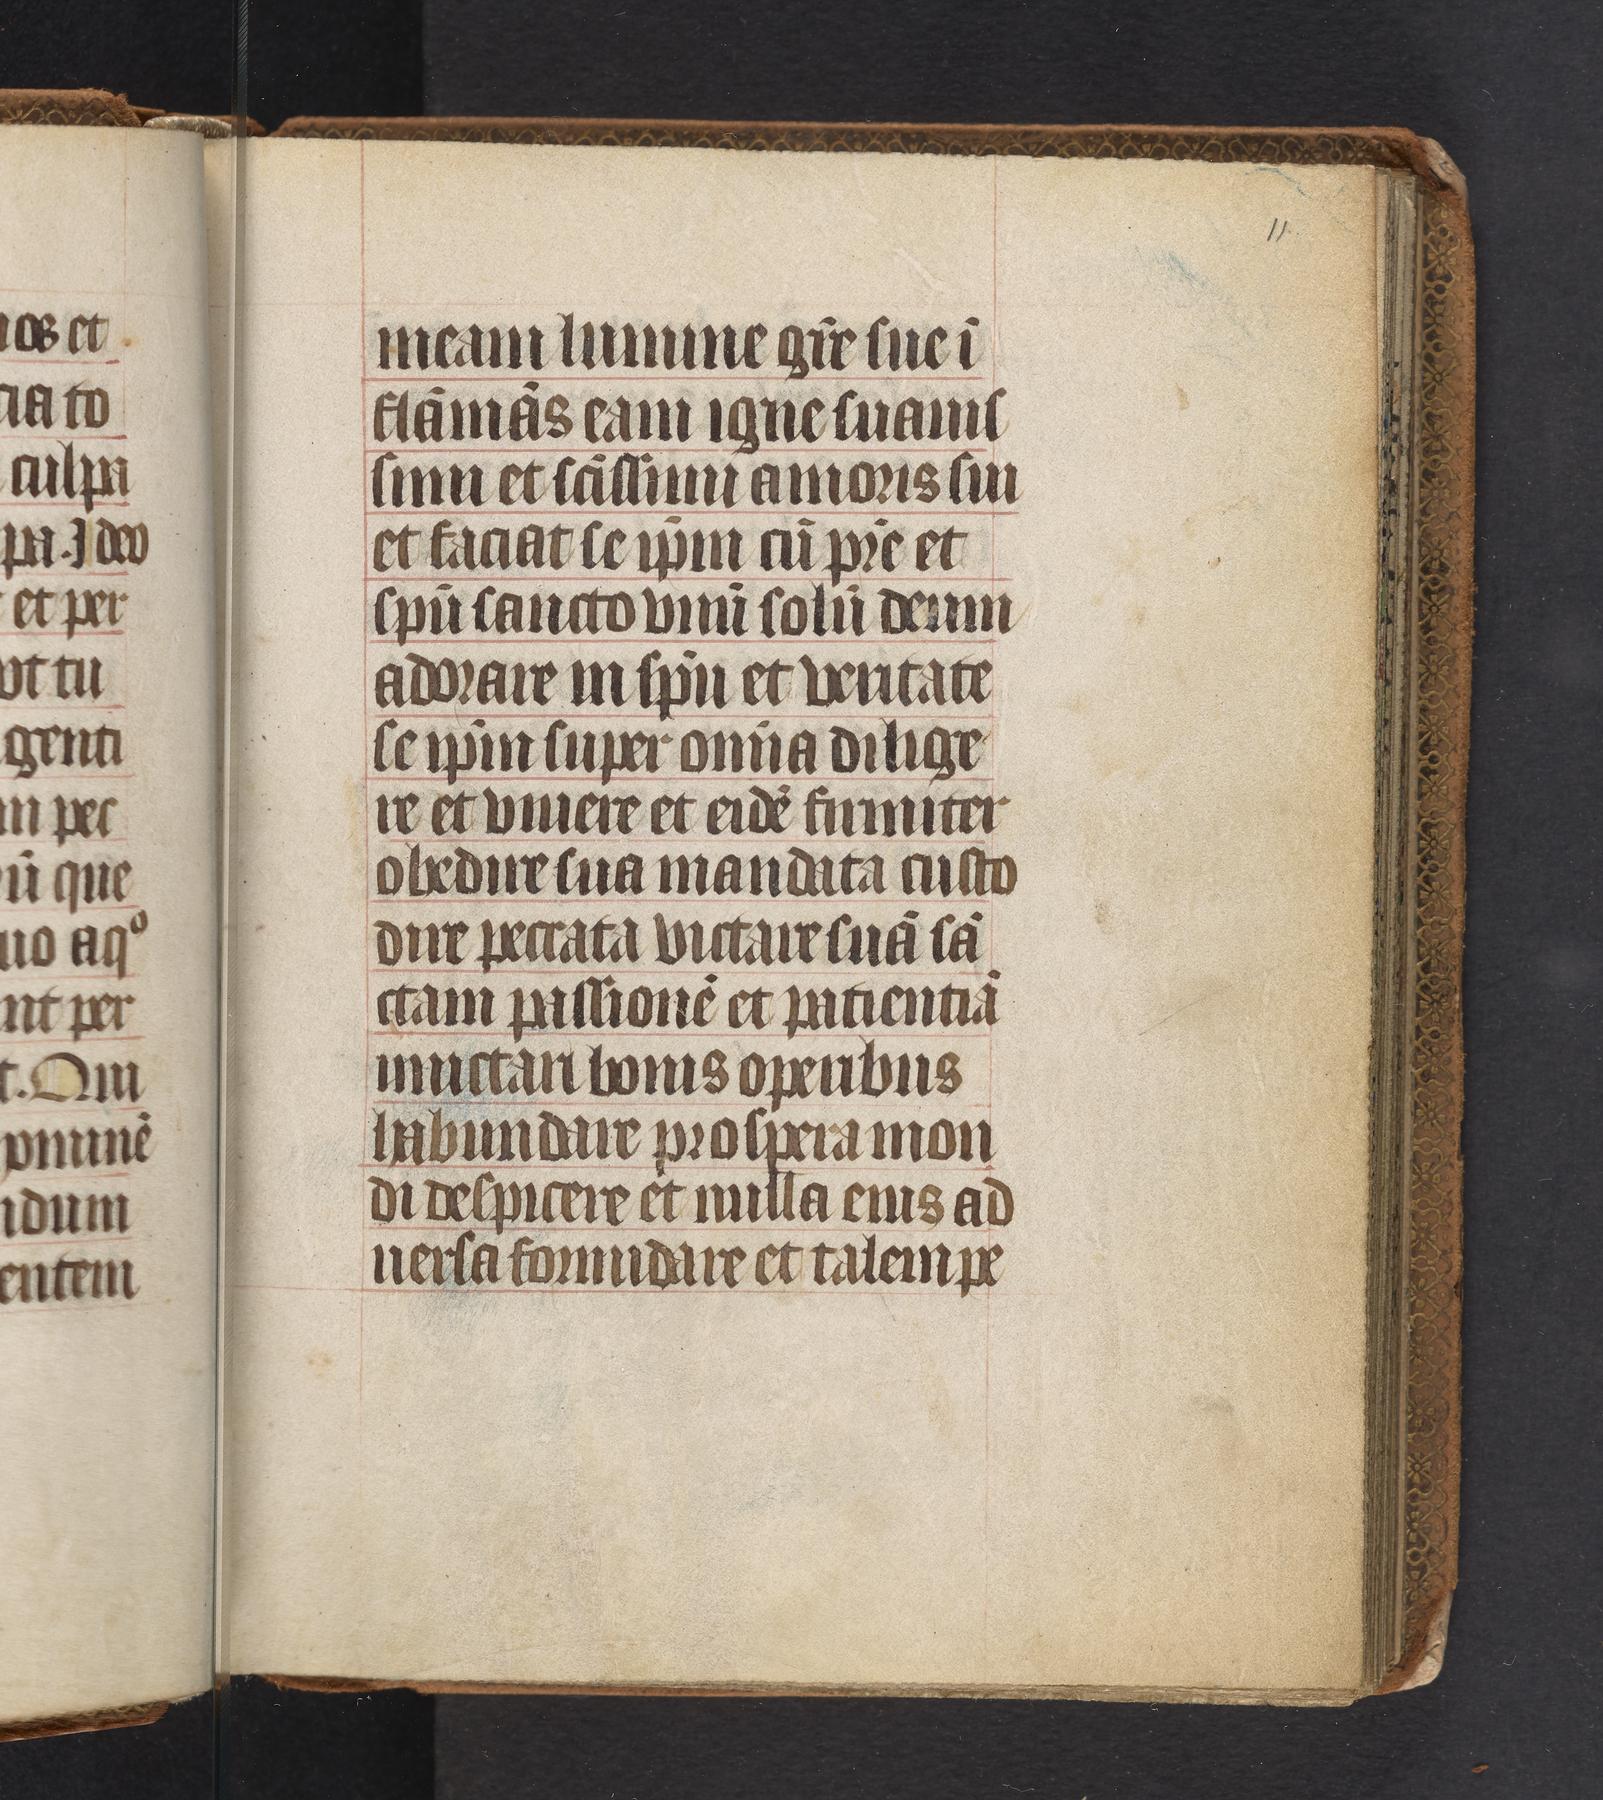 os et
cia to
culpa
pa. Ideo
et per
vt tu
genti
m pec
ū que
uo aqº
nt per
t. Qui
ominē
ndum
entem
11
meam lumine gr̄e sue ī
flāmās eam igne suauis
simi et sc̄issimi amoris sui
et faciat se ip̄m cū pr̄e et
spū sancto vnū solū deum
adorare in sp̄u et veritate
se ip̄m super om̄ia dilige
re et viuere et eidē firmiter
obedire sua mandata custo
dire peccata victare suā sā
ctam passionē et patientiā
imictari bonis operibus
habundare prospera mon
di despicere et nulla eius ad
uersa formidare et talem pe